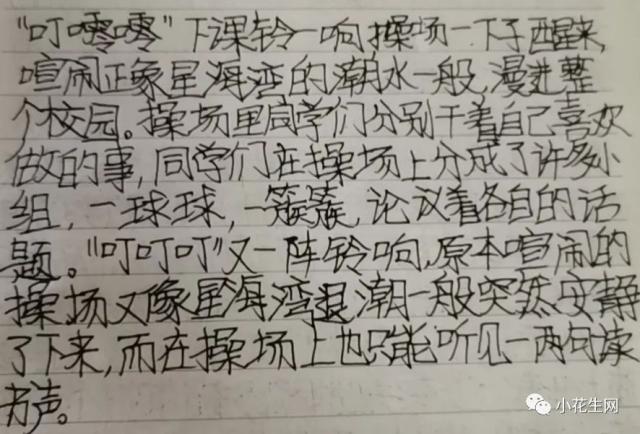 “叮零零”下课铃一响操场一下子醒来,
喧闹正象星海湾的潮水一般,漫进整
个校园。操场里同学们分别干着自己喜欢
做的事,同学们在操场上分成了许多小
组,一球球,一簇簇,论议着各自的话
题。“叮叮叮”又一阵铃响,原本喧闹的
操场又像星海湾退潮一般突然安静
了下来,而在操场上也只能听见一两句读
书声。
小花生网